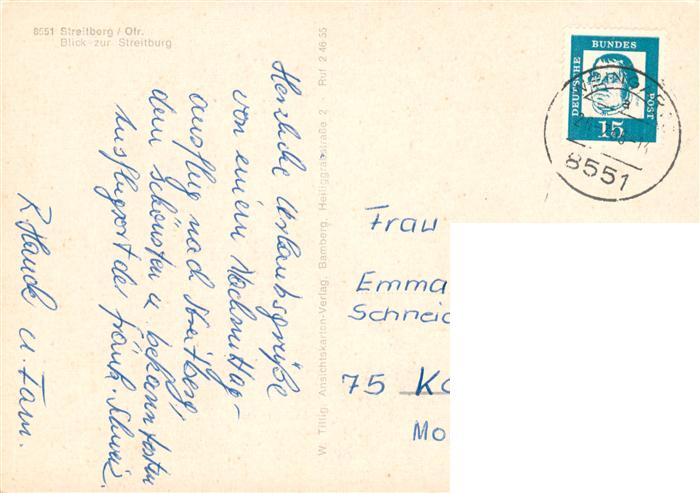 8551 Streitberg / Ofr.
Blick zur Streitburg
Herzliche Urlaubsgrüße
von einem Nachmittag-
ausflug nach Streitberg,
dem schönsten u. bekanntesten
Ausflugsort der fränk. Schweiz.
R. Hauck u. Fam.
W. Tillig, Ansichtskarten-Verlag, Bamberg, Heiliggrabstraße 2 Ruf 2 46 55
DEUTSCHE
BUNDES
POST
15
8551
Frau
Emma
Schneid
75 Ka
Mo